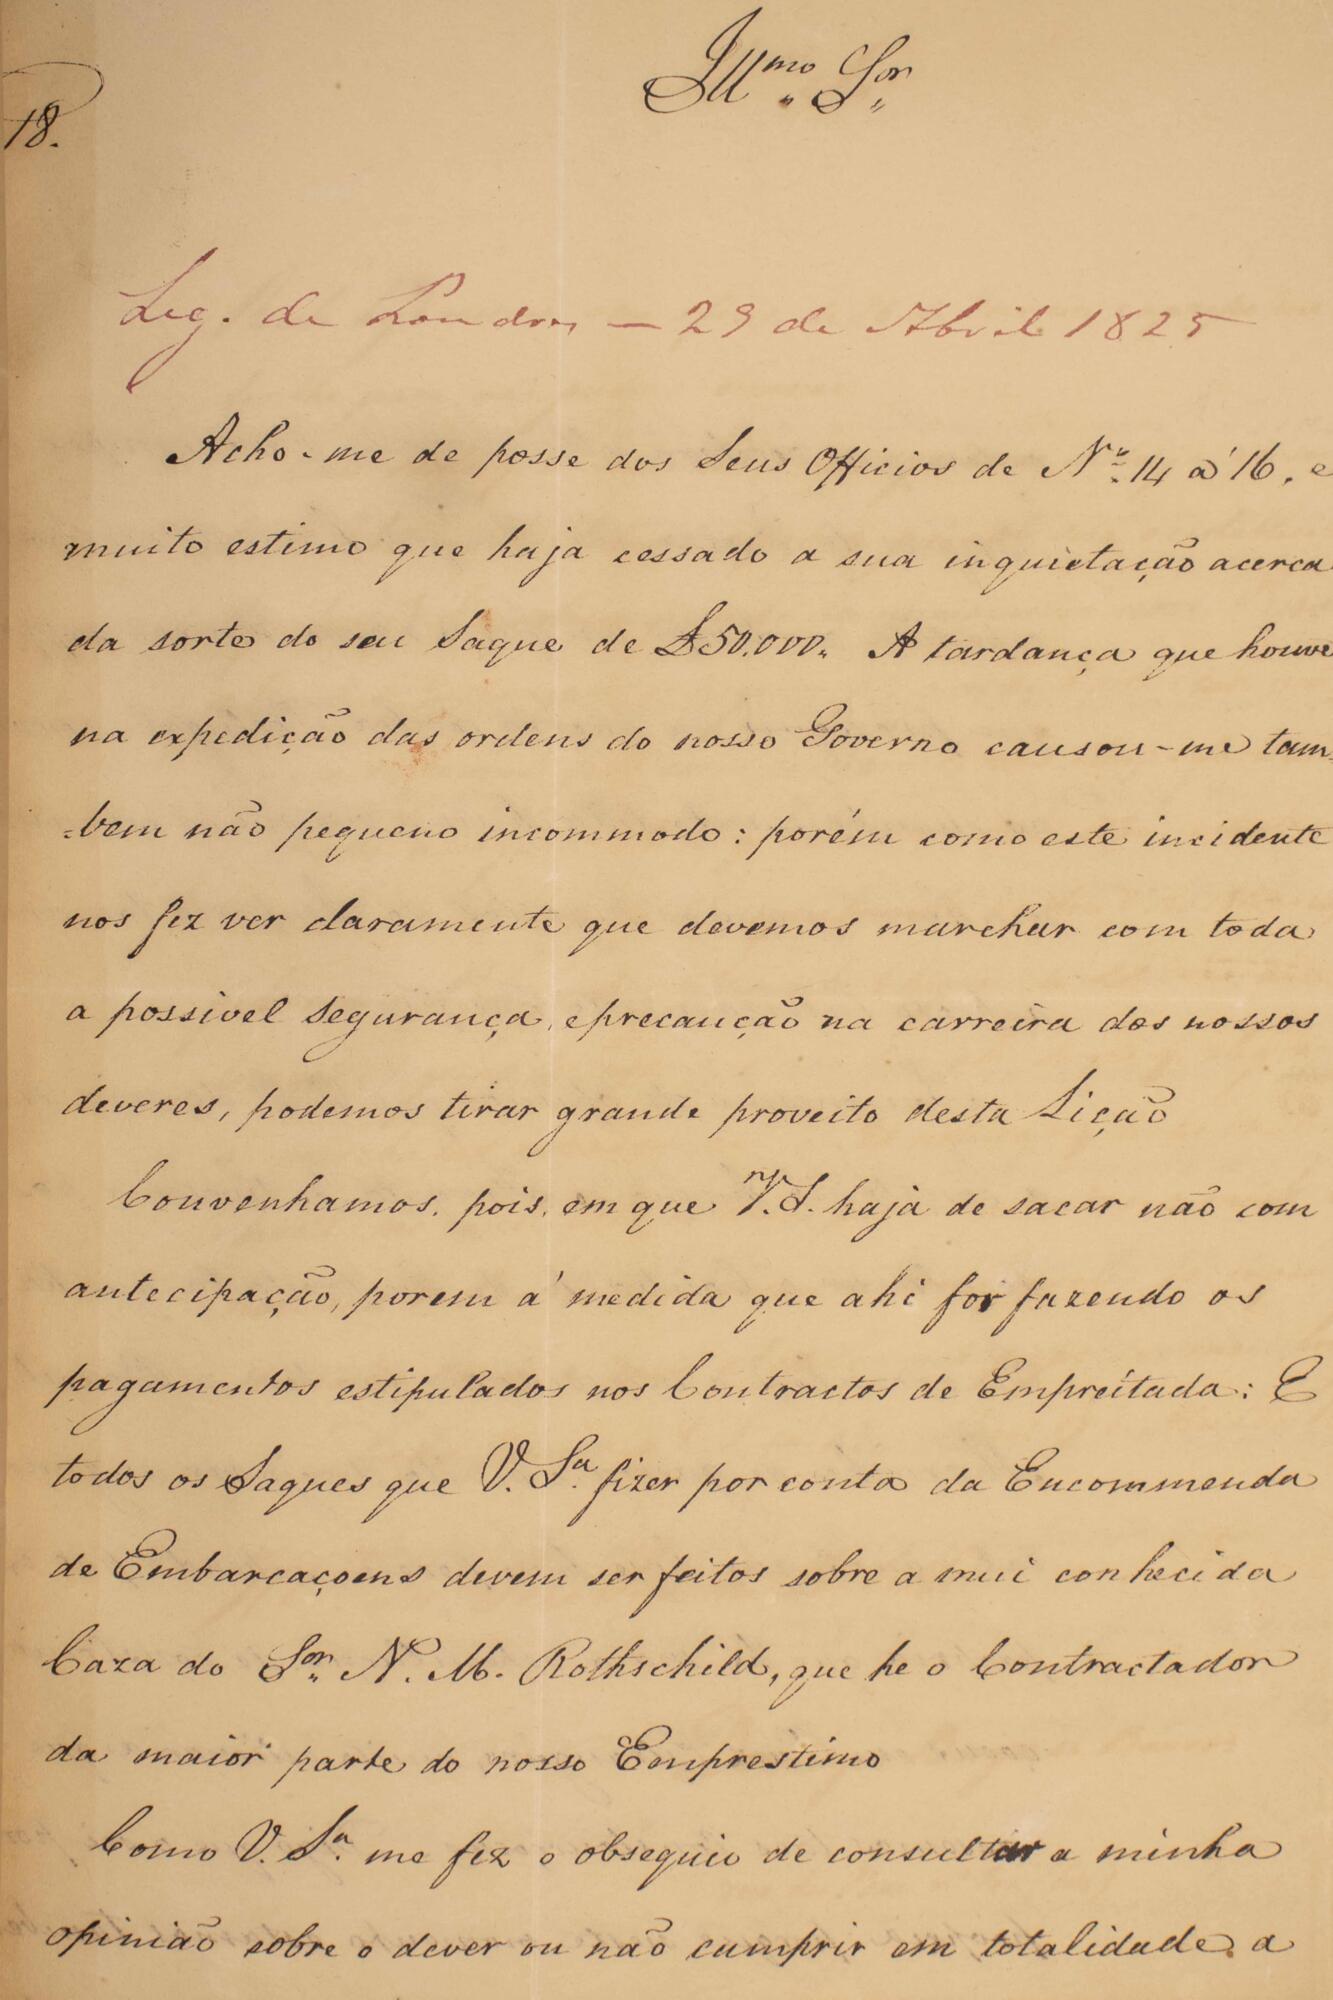 Illmo Sor
18.
Leg. de Londres — 29 de Abril 1825
Acho-me de posse dos Seus Officios de Nos. 14 a' 16, e
muito estimo que haja cessado a sua inquietação acerca
da sorte do seu Saque de £50.000. A tardança que houve
na expedição das ordens do nosso Governo causou-me tam-
=bem não pequeno incommodo: porém como este incidente
nos fez ver claramente que devemos marchar com toda
a possivel segurança, e precaução na carreira dos nossos
deveres, podemos tirar grande proveito desta Lição
Convenhamos, pois, em que V. S. haja de sacar não com
antecipação, porem á medida que ahi for fazendo os
pagamentos estipulados nos Contractos de Empreitada: E
todos os Saques que V. Sa. fizer por conta da Encommenda
de Embarcaçoens devem ser feitos sobre a mui conhecida
Caza do Sor. N. M. Rothschild, que he o Contractador
da maior parte do nosso Emprestimo
Como V. Sa. me fez o obsequio de consultar a minha
opinião sobre o dever ou não cumprir em totalidade a